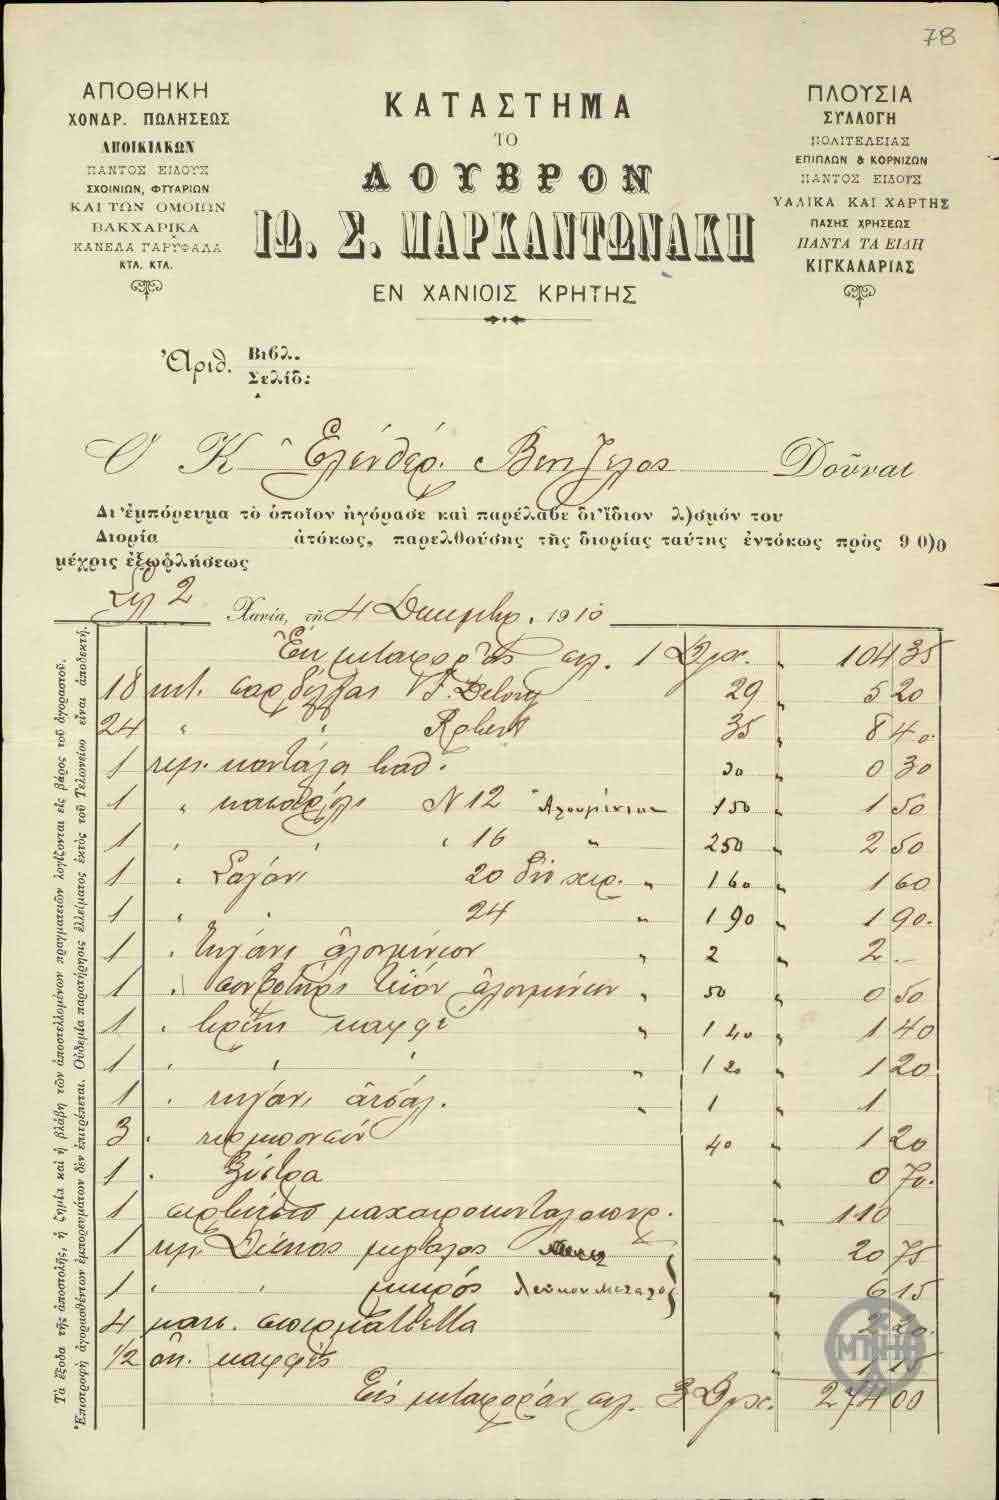 78
ΑΠΟΘΗΚΗ
ΧΟΝΔΡ. ΠΩΛΗΣΕΩΣ
ΑΠΟΙΚΙΑΚΩΝ
ΠΑΝΤΟΣ ΕΙΔΟΥΣ
ΣΧΟΙΝΙΩΝ, ΦΤΥΑΡΙΩΝ
ΚΑΙ ΤΩΝ ΟΜΟΙΩΝ
ΒΑΚΧΑΡΙΚΑ
ΚΑΝΕΛΑ ΓΑΡΥΦΑΛΑ
ΚΤΛ. ΚΤΛ.
ΚΑΤΑΣΤΗΜΑ
ΤΟ
ΛΟΥΒΡΟΝ
ΙΩ. Σ. ΜΑΡΚΑΝΤΩΝΑΚΗ
ΕΝ ΧΑΝΙΟΙΣ ΚΡΗΤΗΣ
ΠΛΟΥΣΙΑ
ΣΥΛΛΟΓΗ
ΠΟΛΙΤΕΛΕΙΑΣ
ΕΠΙΠΛΩΝ & ΚΟΡΝΙΖΩΝ
ΠΑΝΤΟΣ ΕΙΔΟΥΣ
ΥΑΛΙΚΑ ΚΑΙ ΧΑΡΤΗΣ
ΠΑΣΗΣ ΧΡΗΣΕΩΣ
ΠΑΝΤΑ ΤΑ ΕΙΔΗ
ΚΙΓΚΑΛΑΡΙΑΣ
Ἀριθ. Βιβλ.
Σελίδ:
Ο Κ Ἐλευθέρ. Βενιζελος Δοῦναι
Δι' ἐμπόρευμα τὸ ὁποῖον ἠγόρασε καὶ παρέλαβε δι' ἴδιον λ)σμόν του
Διορία ἀτόκως, παρελθούσης τῆς διορίας ταύτης ἐντόκως πρὸς 9 0)0
μέχρις ἐξωφλήσεως
Σελ 2 Χανία, τῇ 4 Δεκεμβρ. 1910
Ἐκ μεταφορᾶς σελ. 1 Δρχ. " 104 35
18 κυτ. σαρδέλλας F. Delory 29 " 5 20
24 " " Robert 35 " 8 40
1 τεμ. κουτάλα 30 " 0 30
1 " κασαρόλι Ν 12 Ἀλουμίνιου 150 " 1 50
1 " " " 16 " 250 " 2 50
1 " Σαγάνι 20 δύο χερ. " 160 " 1 60
1 " " 24 " 190 " 1 90
1 " τηγάνι ἀλουμίνιον " 2 " 2 -
1 " ἀλουμίνιον " 50 " 0 50
1 " τρίπτης καρφὲ " 140 " 1 40
1 " " " " 120 " 1 20
1 " τηγάνι ἀτσάλ. " 1 " 1
3 " 40 " 1 20
1 " ξύστρα " 0 70
1 σερβίτσιο μαχαιροκουταλοπηρ. " 110
1 τεμ. Δίσκος μεγάλος " 20 75
1 " " μικρός Λευκου Μετάλου " 6 15
4 πακ. σπερματσέττα " 2 20
1/2 ὀκ. καρφιὰ " 1 15
Εἰς μεταφοράν σελ. 3 Δρχ. 274 00
Τὰ ἔξοδα τῆς ἀποστολῆς, ἡ ζημία καὶ ἡ βλάβη τῶν ἀποστελλομένων πραγματειῶν λογίζονται εἰς βάρος τοῦ ἀγοραστοῦ.
Ἐπιστροφὴ ἀγορασθέντων ἐμπορευμάτων δὲν ἐπιτρέπεται. Οὐδεμία παρατήρησις ἐλλείματος ἐκτὸς τοῦ Τελωνείου εἶναι ἀποδεκτή.
ΜΠΗΒ